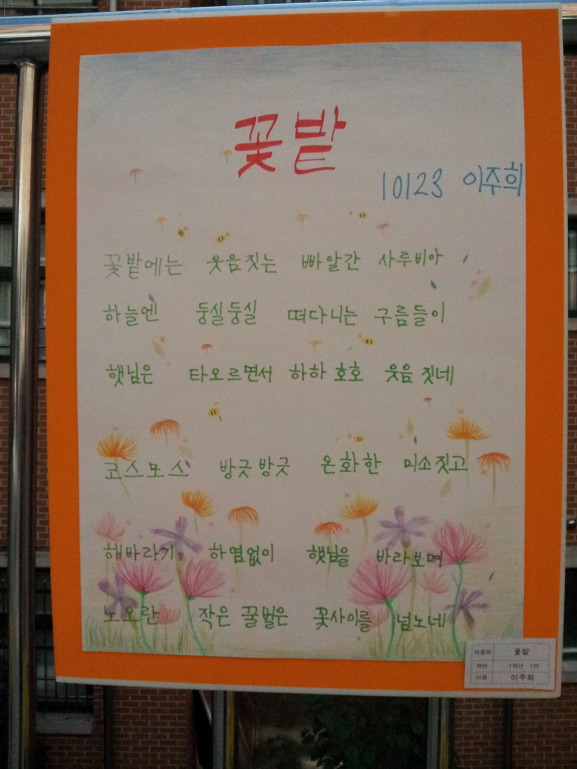 꽃밭
10123 이주희
꽃밭에는 웃음짓는 빠알간 사루비아
하늘엔 둥실둥실 떠다니는 구름들이
햇님은 타오르면서 하하 호호 웃음 짓네
코스모스 방긋방긋 온화한 미소짓고
해바라기 하염없이 햇님을 바라보며
노오란 작은 꿀벌은 꽃사이를 넘노네
작품명 꽃밭
학번 1학년 1반
이름 이주희